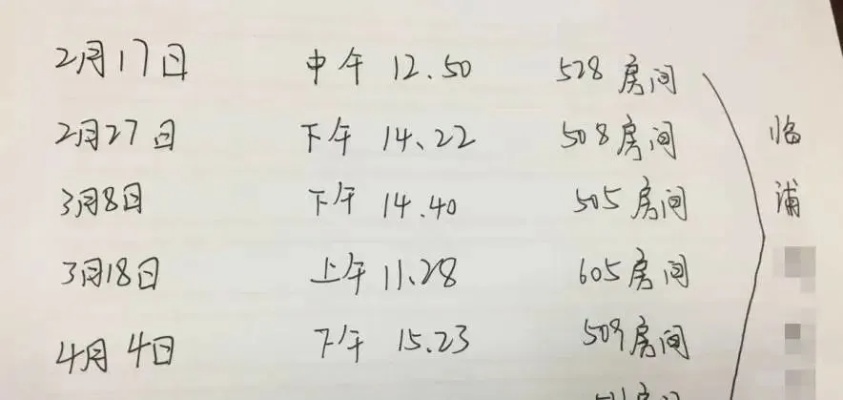 2月17日 中午 12.50 528房间
2月27日 下午 14.22 508房间
3月8日 下午 14.40 505房间
3月18日 上午 11.28 605房间
4月4日 下午 15.23 509房间
临浦